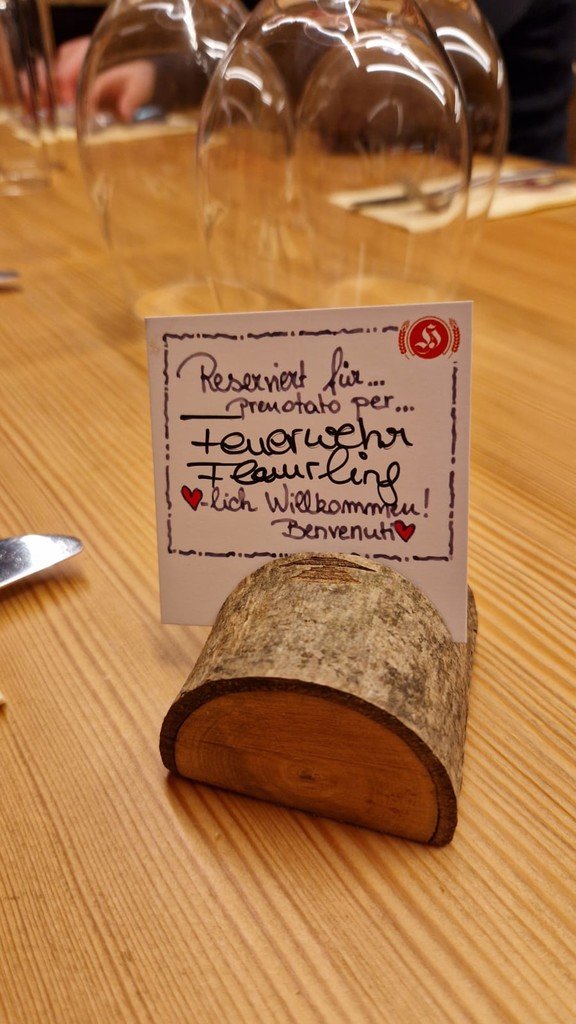 Reserviert für...
prenotato per...
Feuerwehr
Flaurling
♥-lich Willkommen!
Benvenuti♥
H